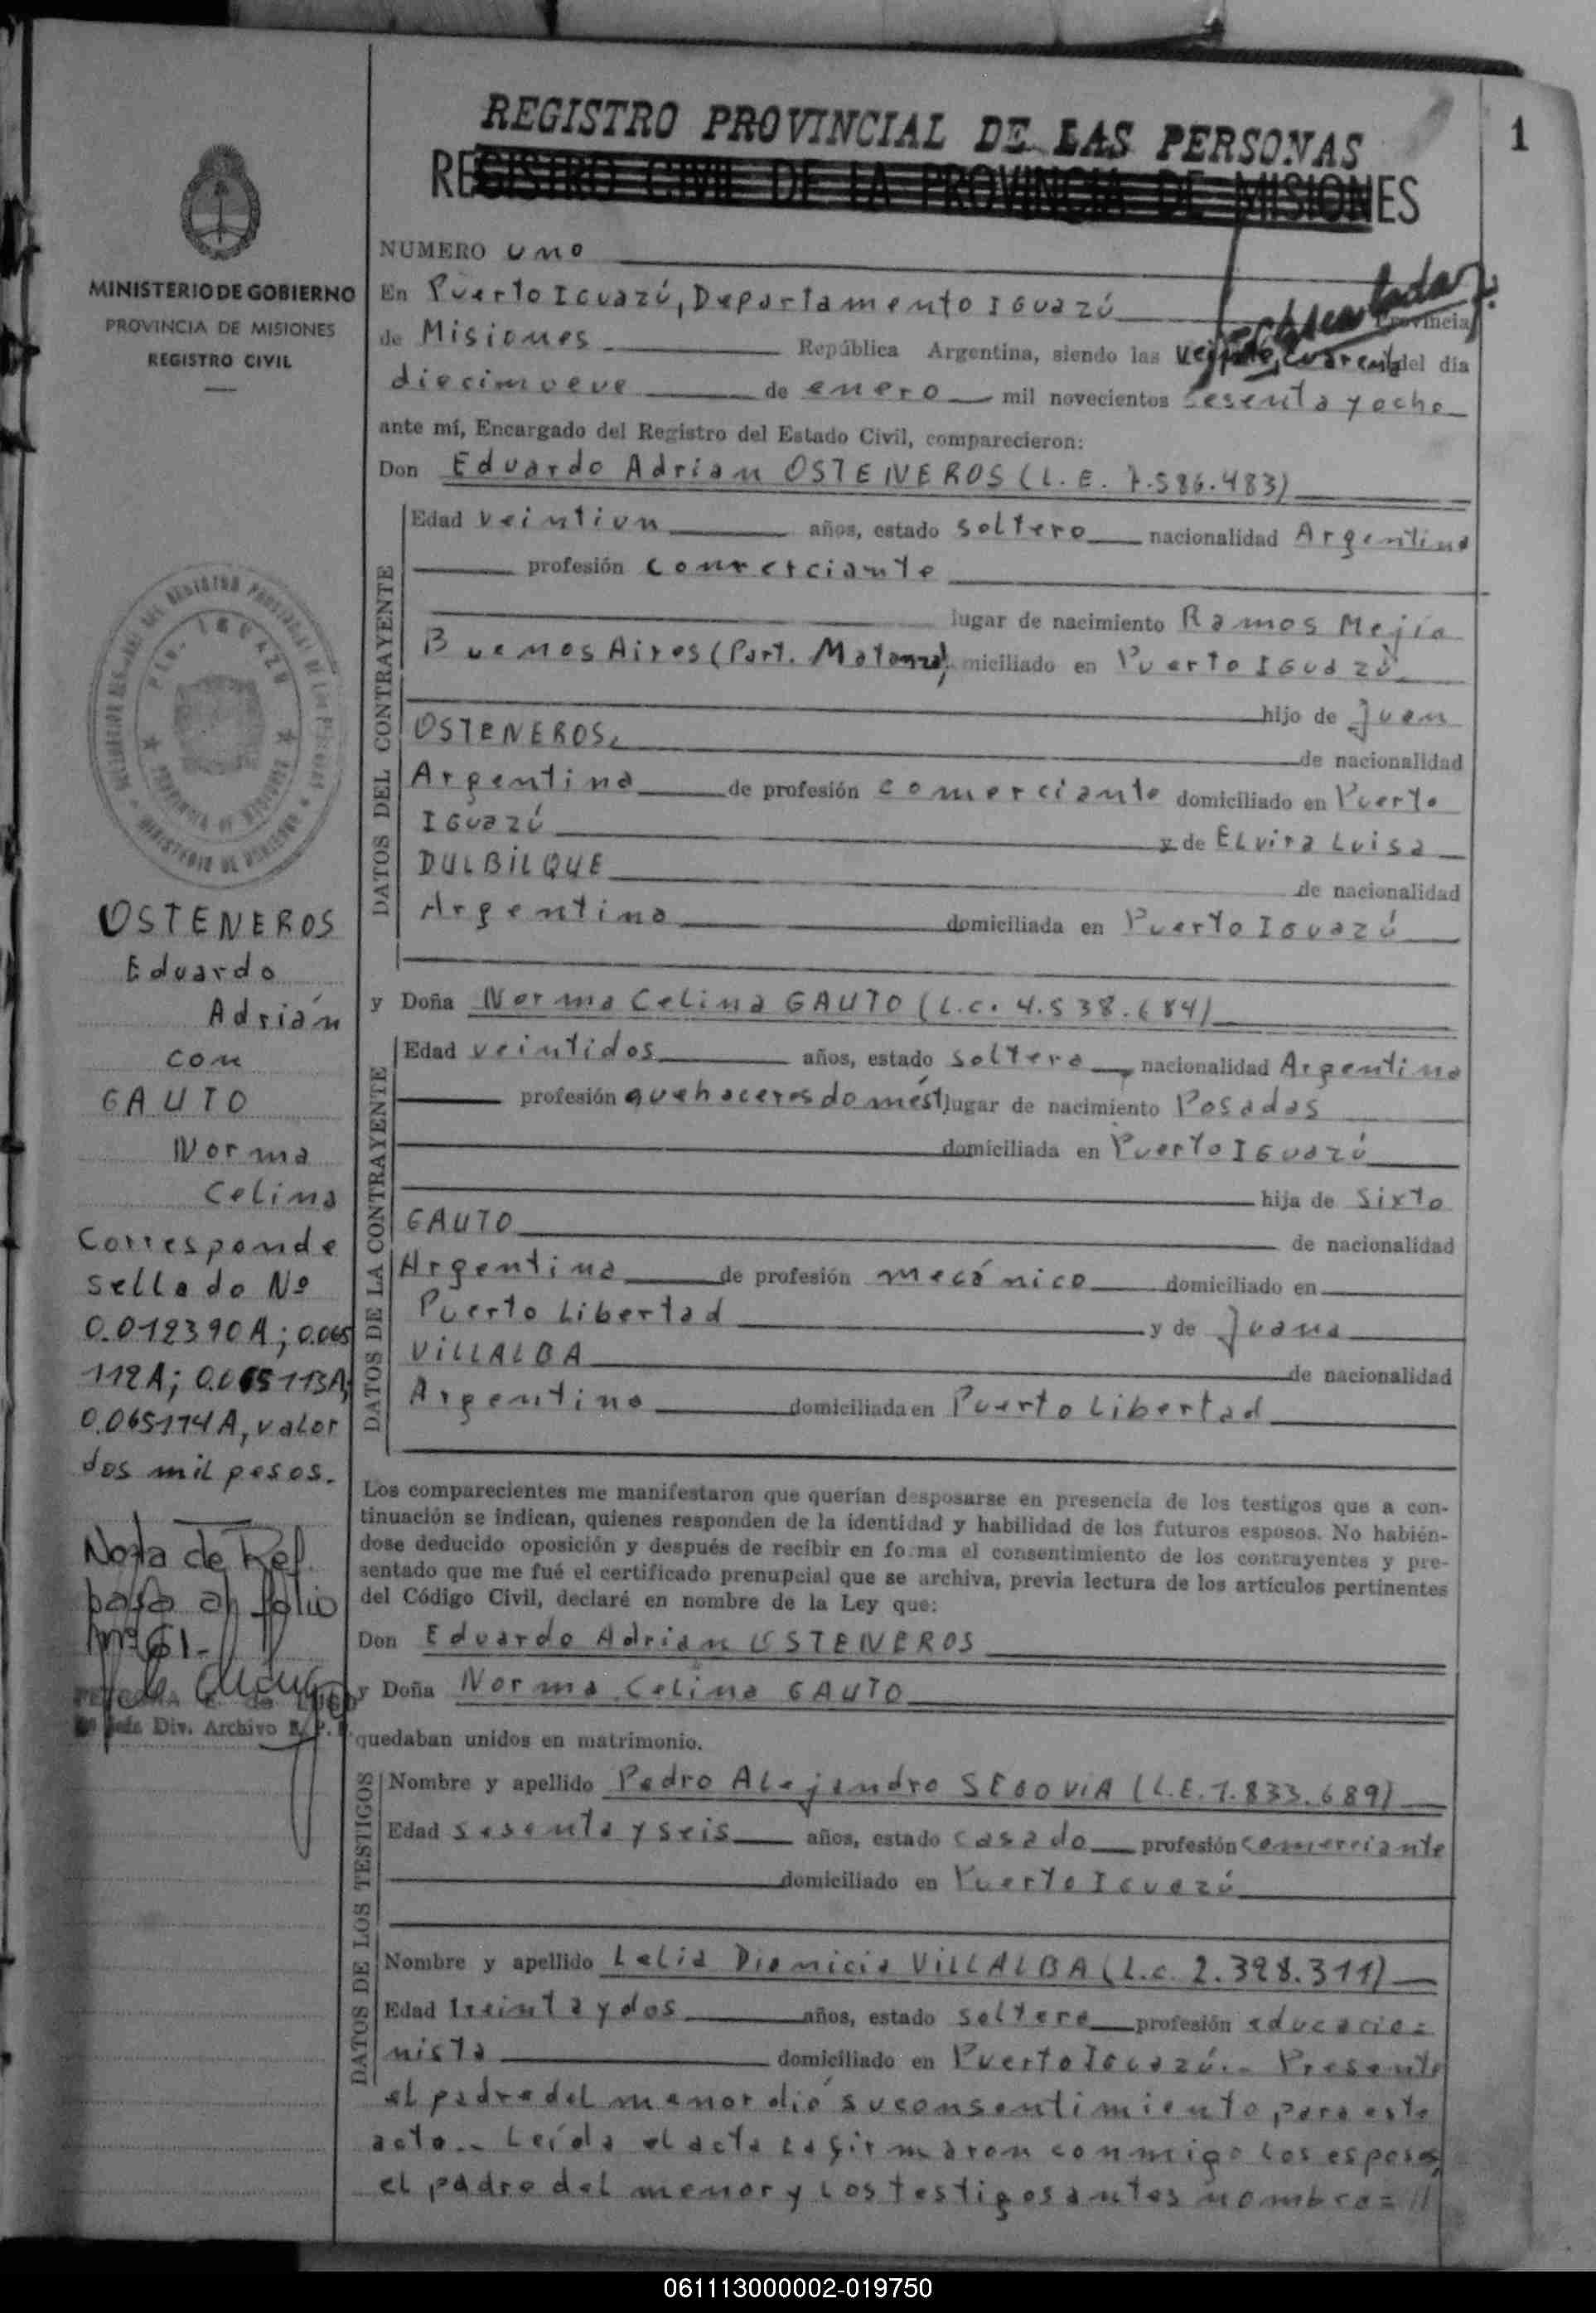 1
REGISTRO PROVINCIAL DE LAS PERSONAS
REGISTRO CIVIL DE LA PROVINCIA DE MISIONES
MINISTERIO DE GOBIERNO
PROVINCIA DE MISIONES
REGISTRO CIVIL
NUMERO uno
En Puerto Iguazú, Departamento Iguazú Provincia
de Misiones República Argentina, siendo las veinte, cuarenta del día
diecinueve de enero mil novecientos sesenta y ocho
ante mí, Encargado del Registro del Estado Civil, comparecieron:
Don Eduardo Adrian OSTENEROS (L.E. 7.586.483)
DATOS DEL CONTRAYENTE
Edad veintiun años, estado soltero nacionalidad Argentina
profesión comerciante
lugar de nacimiento Ramos Mejía
Buenos Aires (Part. Matanza), miciliado en Puerto Iguazú
hijo de Juan
OSTENEROS,
de nacionalidad
Argentina de profesión comerciante domiciliado en Puerto
Iguazú y de ELvira Luisa
DULBILQUE
de nacionalidad
Argentina domiciliada en Puerto Iguazú
y Doña Norma Celina GAUTO (L.C. 4.538.684)
DATOS DE LA CONTRAYENTE
Edad veintidos años, estado soltera, nacionalidad Argentina
profesión quehaceres domést. lugar de nacimiento Posadas
domiciliada en Puerto Iguazú
hija de Sixto
GAUTO
de nacionalidad
Argentina de profesión mecánico domiciliado en
Puerto Libertad y de Juana
VILLALBA
de nacionalidad
Argentina domiciliada en Puerto Libertad
Los comparecientes me manifestaron que querían desposarse en presencia de los testigos que a con-
tinuación se indican, quienes responden de la identidad y habilidad de los futuros esposos. No habién-
dose deducido oposición y después de recibir en forma el consentimiento de los contrayentes y pre-
sentado que me fué el certificado prenupcial que se archiva, previa lectura de los artículos pertinentes
del Código Civil, declaré en nombre de la Ley que:
Don Eduardo Adrian OSTENEROS
y Doña Norma Celina GAUTO
quedaban unidos en matrimonio.
DATOS DE LOS TESTIGOS
Nombre y apellido Pedro Alejandro SEGOVIA (L.E. 7.833.689)
Edad sesenta y seis años, estado casado profesión comerciante
domiciliado en Puerto Iguazú
Nombre y apellido Lelia Dionicia VILLALBA (L.C. 2.328.311)
Edad treinta y dos años, estado soltera profesión educacio=
nista domiciliado en Puerto Iguazú.- Presente
el padre del menor dió su consentimiento para este
acto.- Leída el acta la firmaron conmigo los esposos,
el padre del menor y los testigos antes nombra=//
OSTENEROS
Eduardo
Adrián
con
GAUTO
Norma
Celina
Corresponde
sellado Nº
0.012390A; 0.065
112A; 0.065113A;
0.065114A, valor
dos mil pesos.
Nota de Ref.
pasa al folio
nº 61.-
Div. Archivo R.P.P.
061113000002-019750